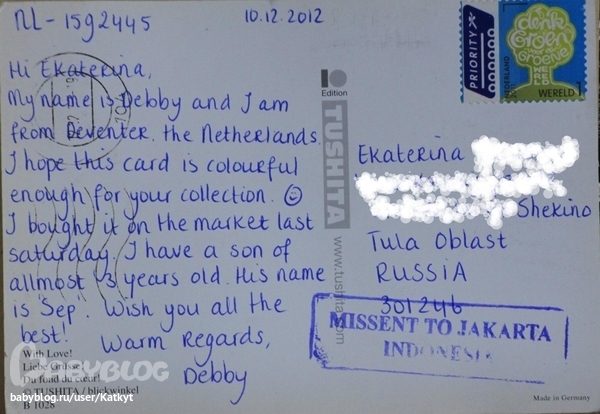 NL-1592445
10.12.2012
Hi Ekaterina,
My name is Debby and I am
from Deventer, the Netherlands.
I hope this card is colourful
enough for your collection. ☺
I bought it on the market last
saturday. I have a son of
allmost 3 years old. His name
is "Sep". Wish you all the
best!
Warm Regards,
Debby
With Love!
Liebe Grüsse!
Du fond du cœur!
© TUSHITA / blickwinkel
B 1028
Edition
TUSHITA
www.tushita.com
PRIORITY
denk
Groen
groene
WERELD
NEDERLAND
WERELD 1
Ekaterina
Shekino
Tula Oblast
RUSSIA
301246
MISSENT TO JAKARTA
INDONESIA
Made in Germany
BABYBLOG
babyblog.ru/user/Katkyt